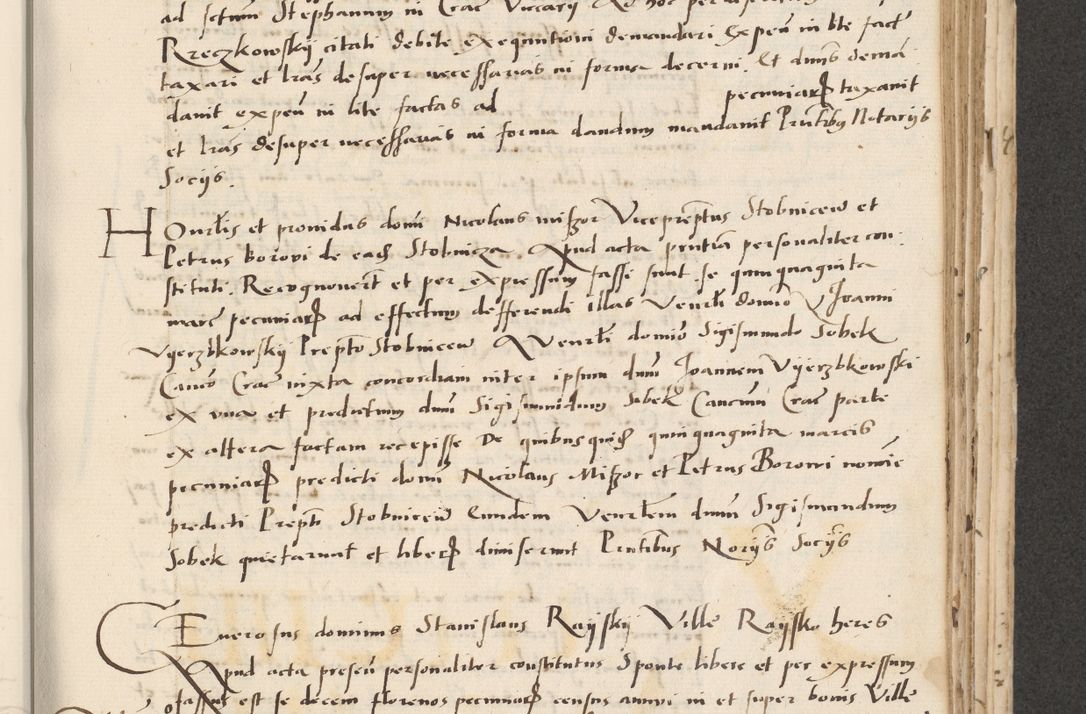 ad sctum Stephanum in Crac Viccarij
Rzeczkowskij citati debite exequutioni demandari Expeñ in lite fact
taxari et lras desuper necessarias in forma decerni. Et dnus deman
dauit expeñ in lite factas ad pecuniarꝝ taxauit
et lras desuper necessarias in forma dandum mandauit Prntibus Notarijs
Socijs.
Honrlis et prouidus domi Nicolaus miszor Viceprepͭtus Stobniceñ et
Petrus borovi de eadꝫ Stobnicza Apud acta prntia personaliter con:
stituti. Recognouerͭt et per expressum fassi sunt se quinquaginta
marc pecuniarꝝ ad effectum defferendi illas Venrli domiõ Joanni
Vyerzbkowskij Prepto Stobniceñ A Venrli domiõ Sigismundo Sobek
Canco Crac iuxta concordiam inter ipsum dnm Joannem Vijerzbkowski
ex una et predictum dnm Sigismundum Sobek Cancum Crac parte
ex altera factam recepisse De quibusquidꝫ quinquaginta marcis
pecuniarꝝ predicti domi Nicolaus Miszor et Petrus Borowi nomiẽ
predicti Prepti Stobniceñ Eundem Venrlem dnm Sigismundum
Sobek quietarunt et liberꝝ dimiserunt Prntibus Norijs Socijs
Generosus dominus Stanislaus Rayskij Ville Raysko heres
Apud acta preseñ personaliter constitutus Sponte libere et per expressum
fassus est se decem florenos pecuniarꝝ census annui in et super bonis Ville